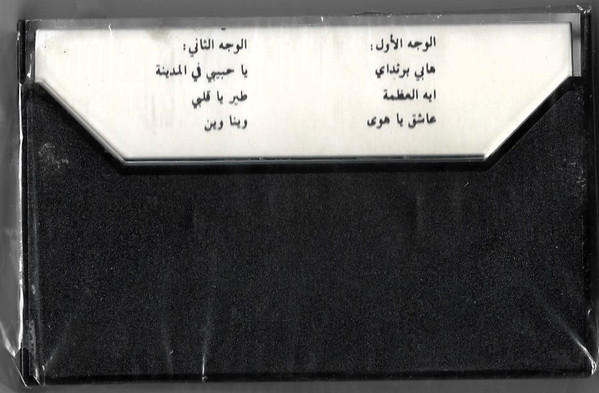 الوجه الأول:
هابي برتداي
ايه العظمة
عاشق يا هوى
الوجه الثاني:
يا حبيبي في المدينة
طير يا قلبي
وينا وين